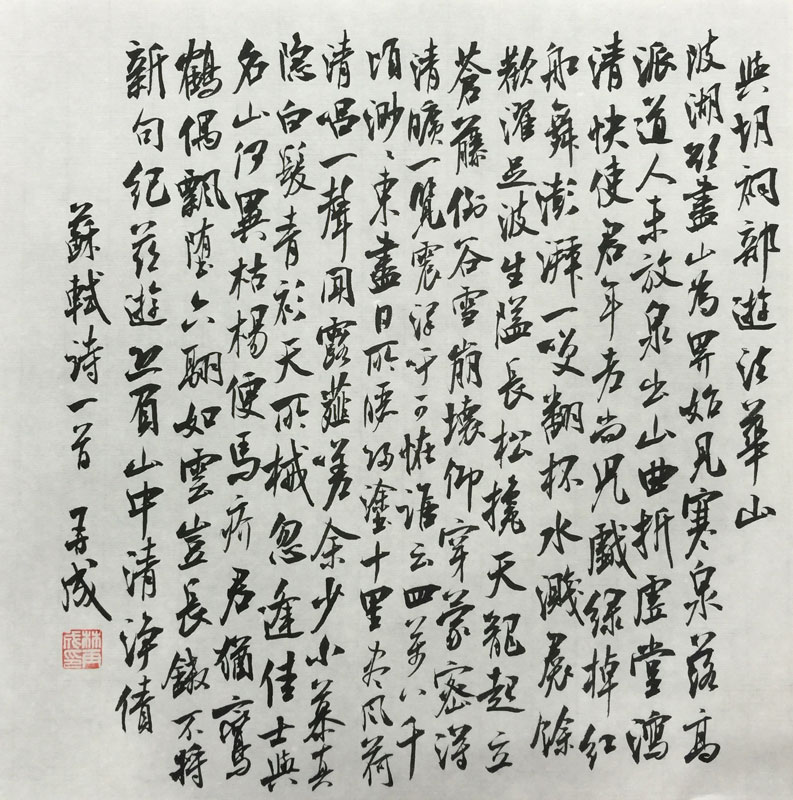 與胡祠部遊法華山
陂湖欲盡山為界始見寒泉落高
派道人未放泉出山曲折虛堂瀉
清快使君年老尚兒戲綠棹紅
船舞澎湃一笑翻杯水濺裙餘
歡濯足波生隘長松攙天龍起立
蒼藤倒谷雪崩壞仰穿蒙密得
清曠一覽震澤吁可怪誰云四萬八千
頃渺々東盡日所曬歸塗十里盡風荷
清唱一聲聞露薤嗟余少小慕真
隐白髮青衫天所械忽逢佳士與
名山何異枯楊便馬疥君猶鸞
鶴偶飄墮六翮如雲豈長鎩不將
新句紀茲遊恐負山中清淨債
蘇軾詩一首 成